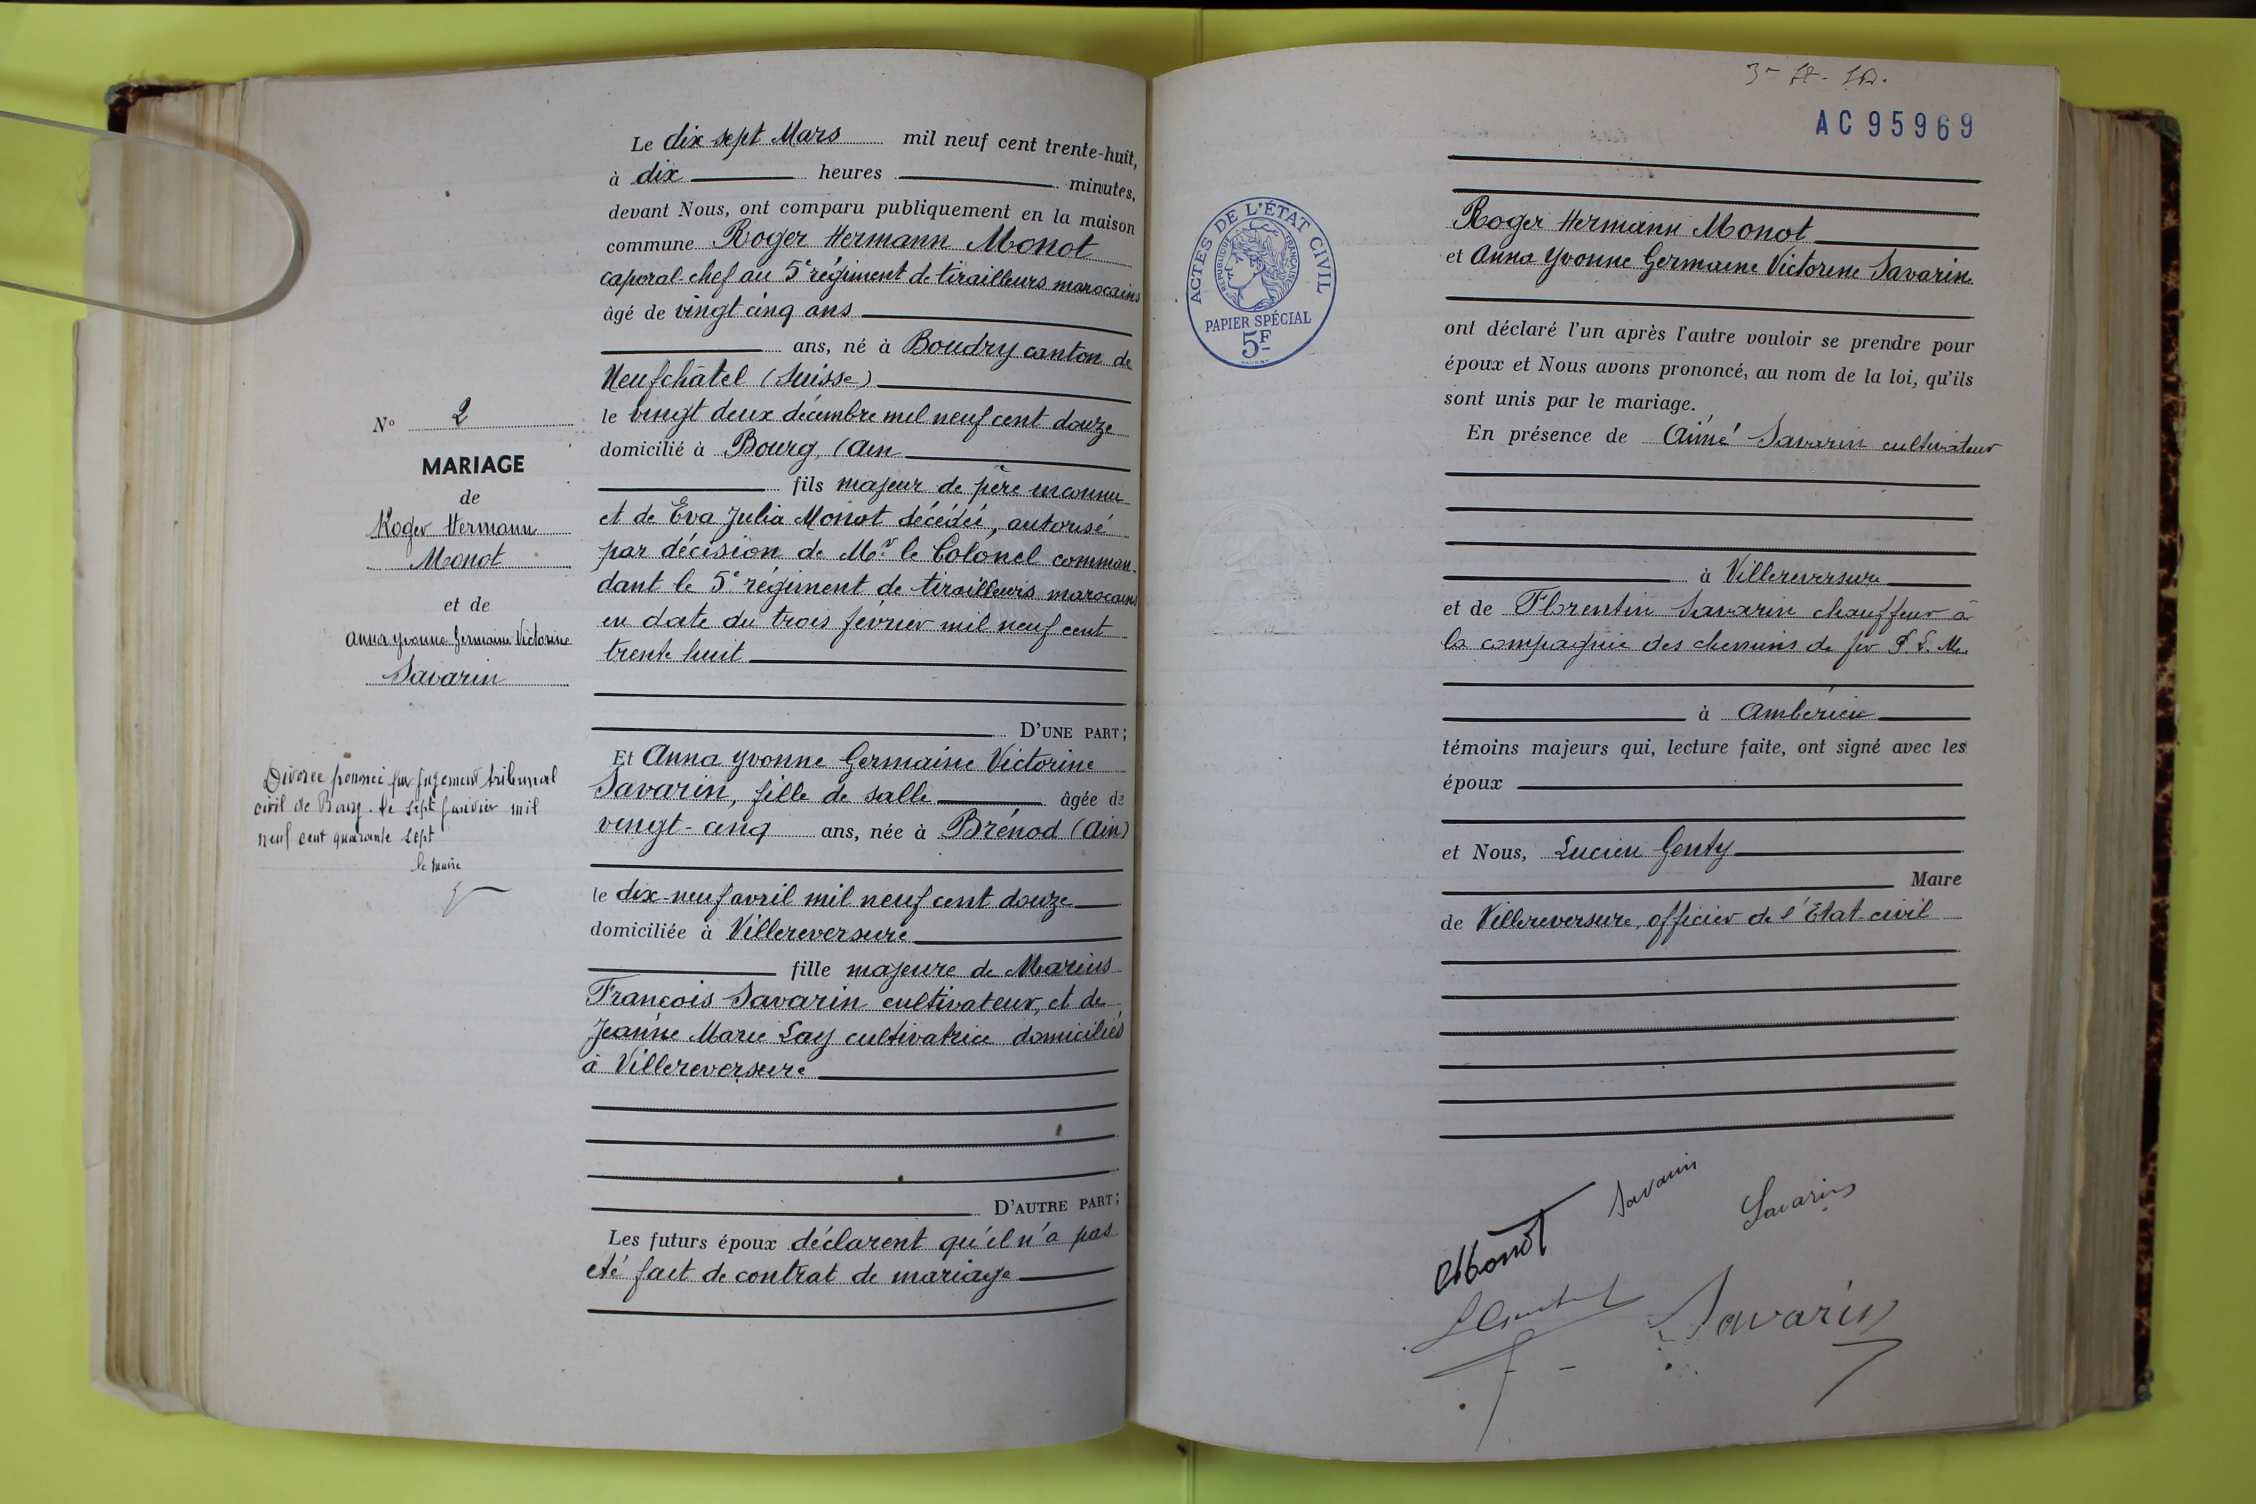 Le dix sept Mars mil neuf cent trente-huit,
à dix heures minutes,
devant Nous, ont comparu publiquement en la maison
commune Roger Hermann Monot
caporal-chef au 5e régiment de tirailleurs marocains
âgé de vingt cinq ans
ans, né à Boudry canton de
Neufchâtel (Suisse)
le vingt deux décembre mil neuf cent douze
domicilié à Bourg, (Ain
fils majeur de père inconnu
et de Eva Julia Monot décédée, autorisé
par décision de Mr le Colonel comman-
dant le 5e régiment de tirailleurs marocains
en date du trois février mil neuf cent
trente huit
D'UNE PART;
Et Anna Yvonne Germaine Victorine
Savarin, fille de salle âgée de
vingt-cinq ans, née à Brénod (Ain)
le dix-neuf avril mil neuf cent douze
domiciliée à Villereversure
fille majeure de Marius
François Savarin cultivateur, et de
Jeanne Marie Lay cultivatrice domiciliés
à Villereversure
D'AUTRE PART;
Les futurs époux déclarent qu'il n'a pas
été fait de contrat de mariage
N° 2
MARIAGE
de
Roger Hermann
Monot
et de
Anna Yvonne Germaine Victorine
Savarin
Divorce prononcé par jugement tribunal
civil de Bourg le sept janvier mil
neuf cent quarante sept
le maire
AC 95969
ACTES DE L'ÉTAT CIVIL
RÉPUBLIQUE FRANÇAISE
PAPIER SPÉCIAL
5F
Roger Hermann Monot
et Anna Yvonne Germaine Victorine Savarin
ont déclaré l'un après l'autre vouloir se prendre pour
époux et Nous avons prononcé, au nom de la loi, qu'ils
sont unis par le mariage.
En présence de Aimé Savarin cultivateur
à Villereversure
et de Florentin Savarin chauffeur à
la compagnie des chemins de fer P. L. M.
à Ambérieu
témoins majeurs qui, lecture faite, ont signé avec les
époux
et Nous, Lucien Genty
Maire
de Villereversure, officier de l'Etat-civil
Monot
Savarin
Savarin
Savarin